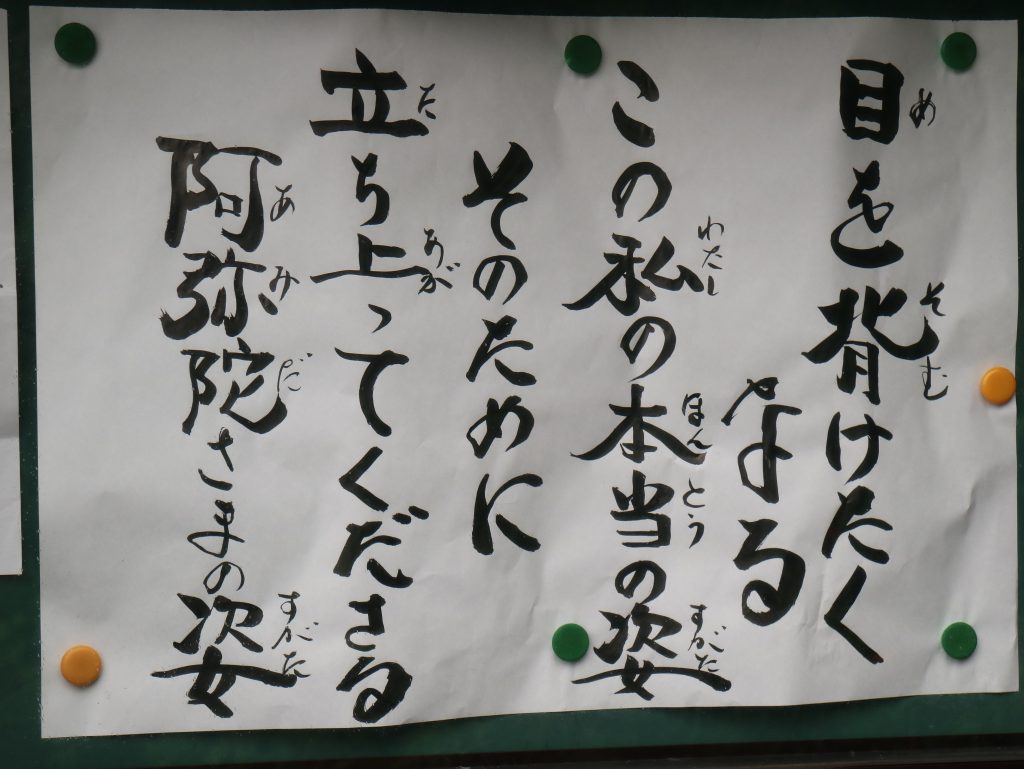 目を背けたく
なる
この私の本当の姿
そのために
立ち上ってくださる
阿弥陀さまの姿
め
そむ
わたし
ほんとう
すがた
た
あが
あみだ
すがた